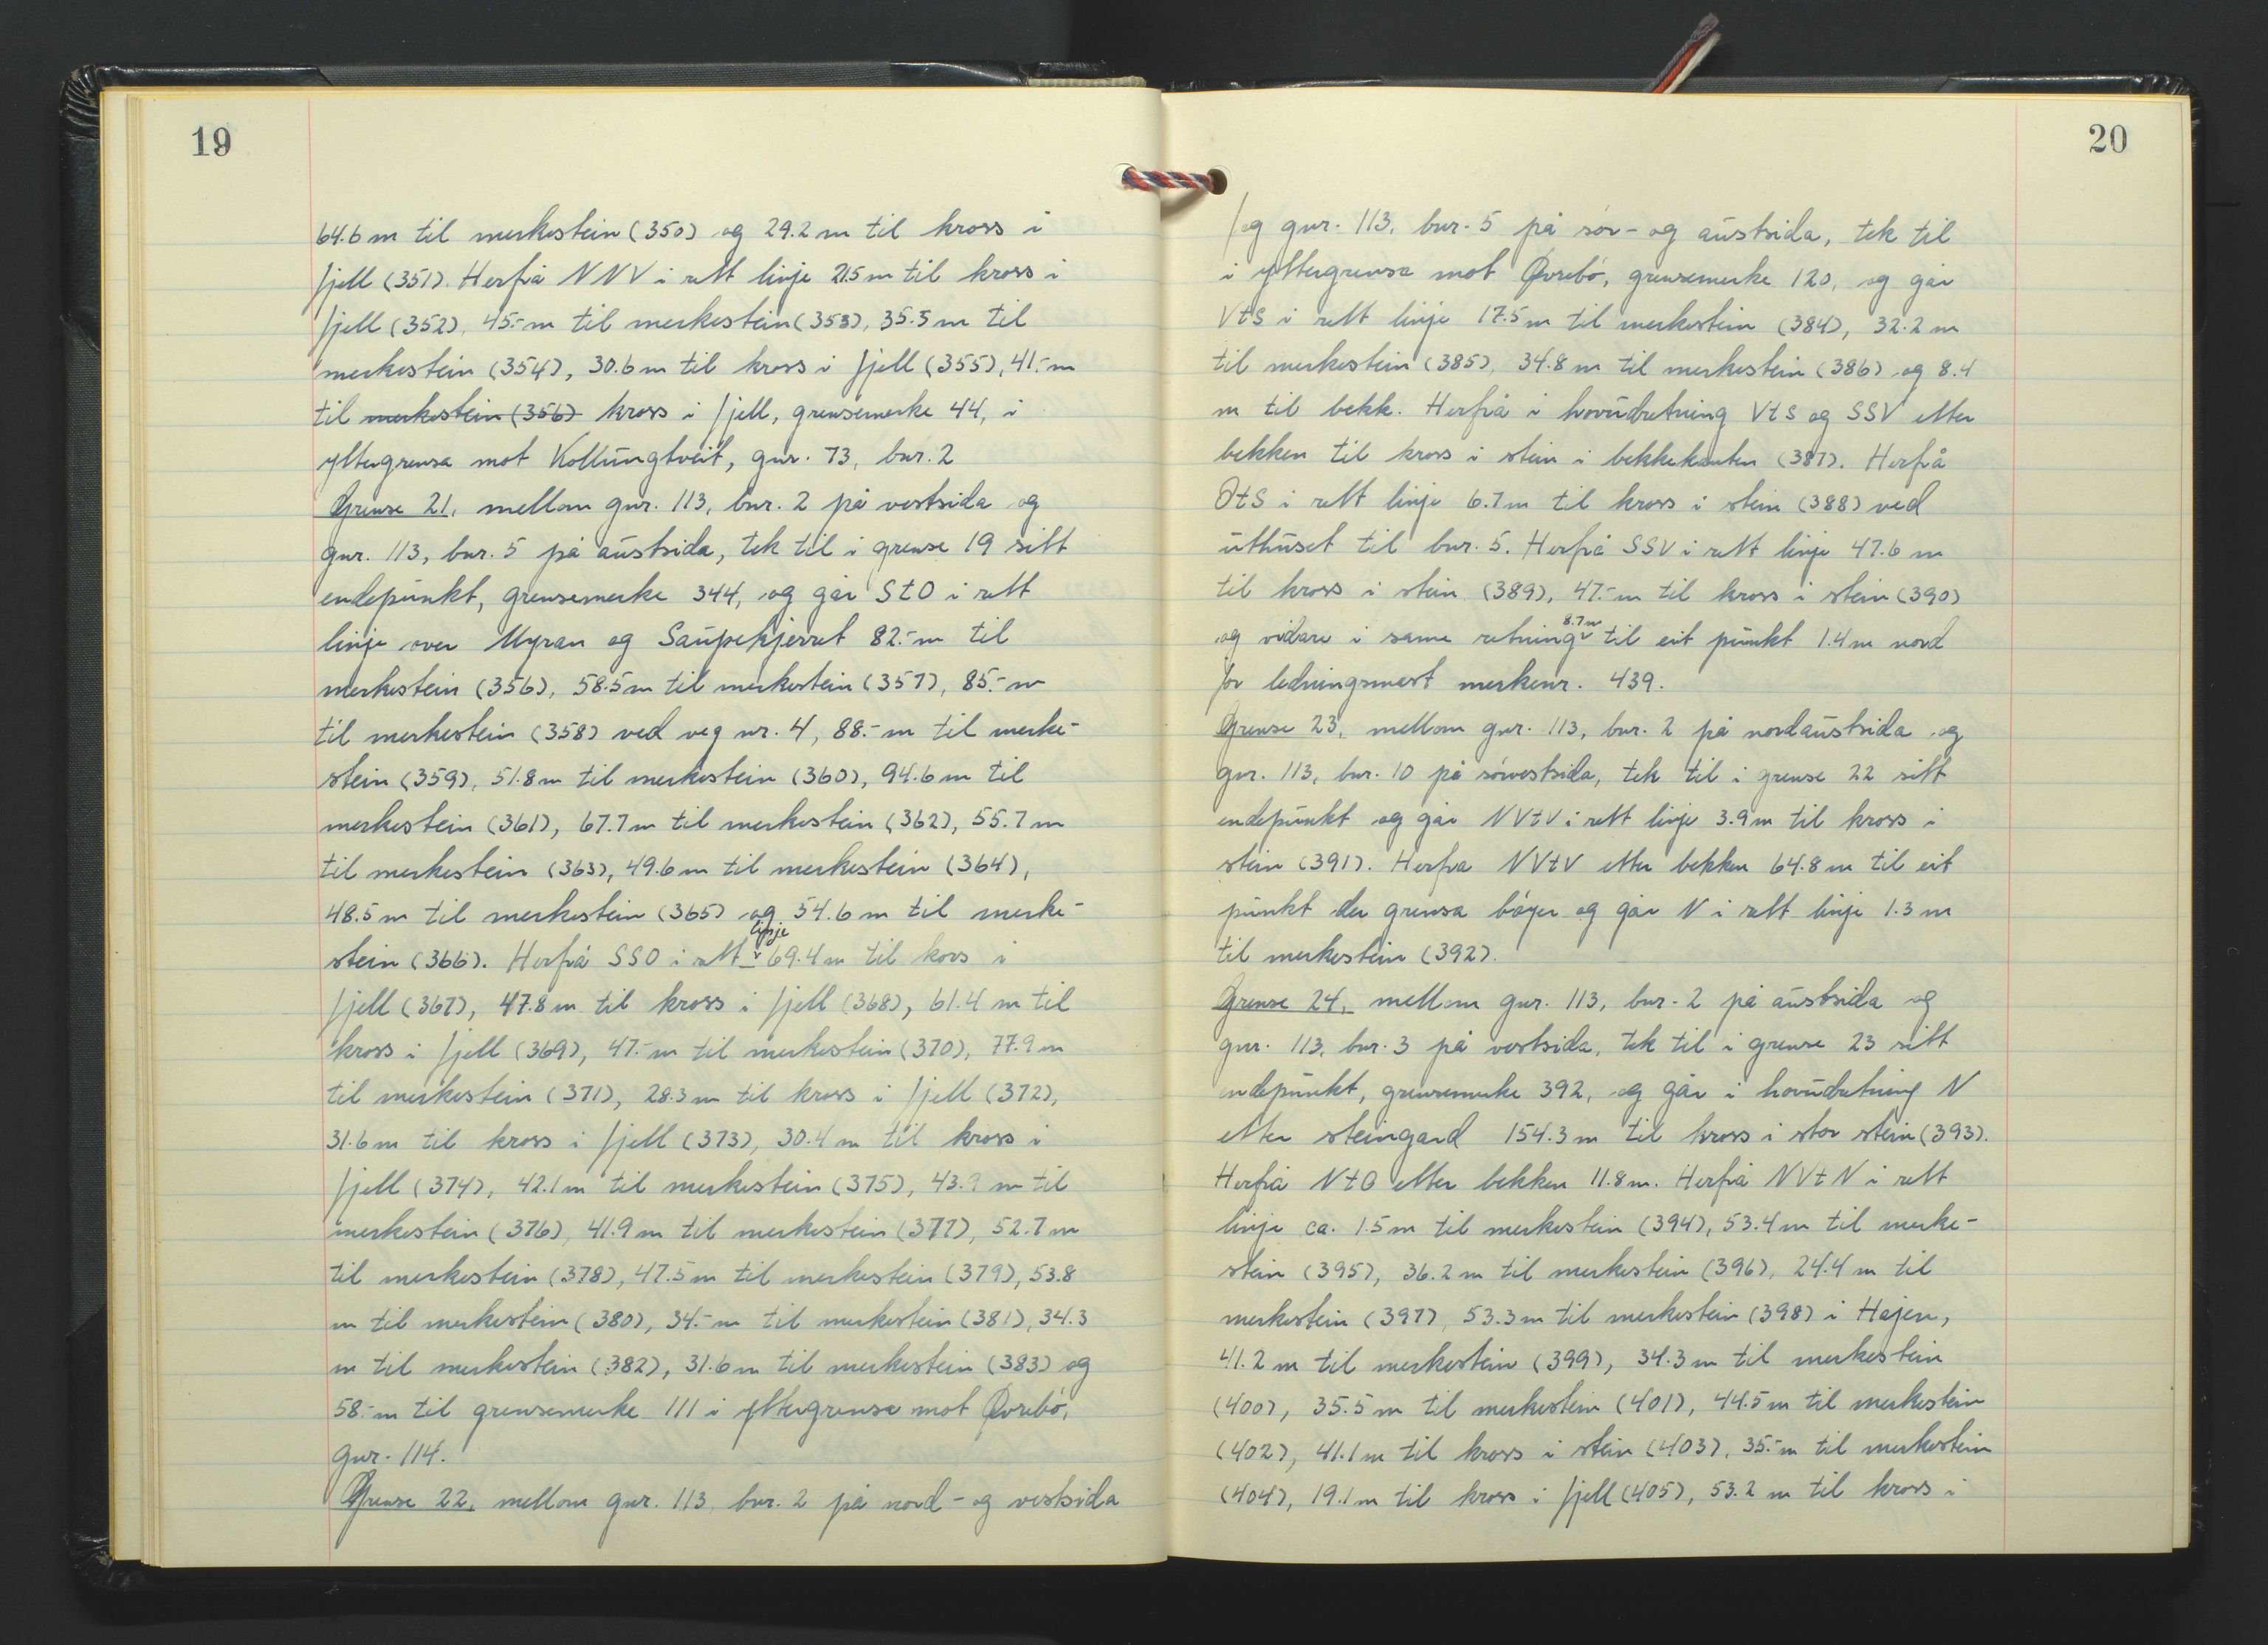 19
64.6 m til merkestein (350) og 29.2 m til kross i
fjell (351). Herfrå NNV i rett linje 21.5 m til kross i
fjell (352), 45.- m til merkestein (353), 35.5 m til
merkestein (354), 30.6 m til kross i fjell (355), 41.- m
til merkestein (356) kross i fjell, grensemerke 44, i
yttergrensa mot Kollungtveit, gnr. 73, bnr. 2
Grense 21, mellom gnr. 113, bnr. 2 på vestsida og
gnr. 113, bnr. 5 på austsida, tek til i grense 19 sitt
endepunkt, grensemerke 344, og går StO i rett
linje over Myran og Saupekjerret 82.- m til
merkestein (356), 58.5 m til merkestein (357), 85.- m
til merkestein (358) ved veg nr. 4, 88.- m til merke-
stein (359), 51.8 m til merkestein (360), 94.6 m til
merkestein (361), 67.7 m til merkestein (362), 55.7 m
til merkestein (363), 49.6 m til merkestein (364),
48.5 m til merkestein (365) og 54.6 m til merke-
stein (366). Herfrå SSO i rett linje 69.4 m til kors i
fjell (367), 47.8 m til kross i fjell (368), 61.4 m til
kross i fjell (369), 47.- m til merkestein (370), 77.9 m
til merkestein (371), 28.3 m til kross i fjell (372),
31.6 m til kross i fjell (373), 30.4 m til kross i
fjell (374), 42.1 m til merkestein (375), 43.9 m til
merkestein (376), 41.9 m til merkestein (377), 52.7 m
til merkestein (378), 47.5 m til merkestein (379), 53.8
m til merkestein (380), 34.- m til merkestein (381), 34.3
m til merkestein (382), 31.6 m til merkestein (383) og
58.- m til grensemerke 111 i yttergrensa mot Øvrebó,
gnr. 114.
Grense 22, mellom gnr. 113, bnr. 2 på nord- og vestsida
20
og gnr. 113, bnr. 5 på sør- og austsida, tek til
i yttergrensa mot Øvrebó, grensemerke 120, og går
VtS i rett linje 17.5 m til merkestein (384), 32.2 m
til merkestein (385), 34.8 m til merkestein (386) og 8.4
m til bekk. Herfrå i hovudretning VtS og SSV etter
bekken til kross i stein i bekkekanten (387). Herfrå
OtS i rett linje 6.7 m til kross i stein (388) ved
uthuset til bnr. 5. Herfrå SSV i rett linje 47.6 m
til kross i stein (389), 47.- m til kross i stein (390)
og vidare i same retning 8.7 m til eit punkt 1.4 m nord
for ledningsmast merkenr. 439.
Grense 23, mellom gnr. 113, bnr. 2 på nordaustsida og
gnr. 113, bnr. 10 på sørvestsida, tek til i grense 22 sitt
endepunkt og går NVtV i rett linje 3.9 m til kross i
stein (391). Herfra NVtV etter bekken 64.8 m til eit
punkt der grensa bóyer og går N i rett linje 1.3 m
til merkestein (392).
Grense 24, mellom gnr. 113, bnr. 2 på austsida og
gnr. 113, bnr. 3 på vestsida, tek til i grense 23 sitt
endepunkt, grensemerke 392, og går i hovudretning N
etter steingard 154.3 m til kross i stor stein (393).
Herfrå NtO etter bekken 11.8 m. Herfrå NVtN i rett
linje ca. 1.5 m til merkestein (394), 53.4 m til merke-
stein (395), 36.2 m til merkestein (396), 24.4 m til
merkestein (397), 53.3 m til merkestein (398) i Hajen,
41.2 m til merkestein (399), 34.3 m til merkestein
(400), 35.5 m til merkestein (401), 44.5 m til merkestein
(402), 41.1 m til kross i stein (403), 35.- m til merkestein
(404), 19.1 m til kross i fjell (405), 53.2 m til kross i